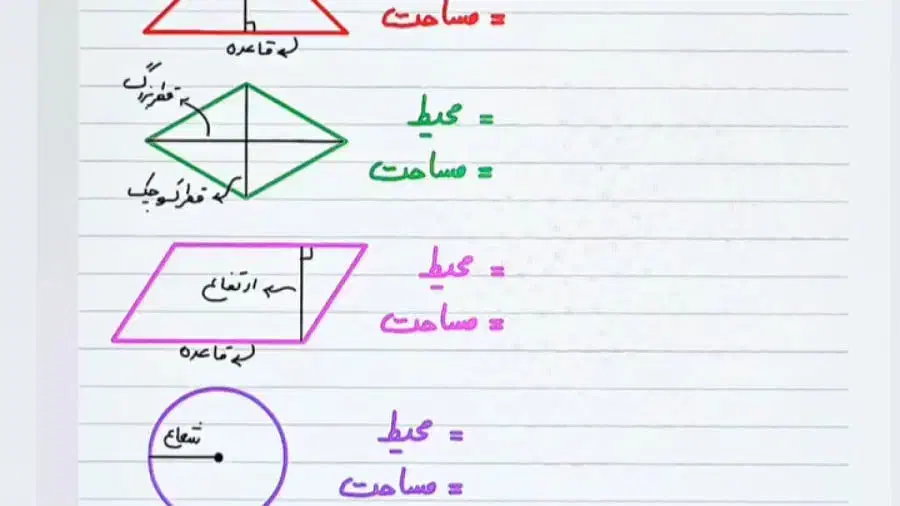 مساحت =
قاعده
قطر بزرگ
محیط =
مساحت =
قطر کوچک
محیط =
ارتفاع
مساحت =
قاعده
محیط =
شعاع
مساحت =